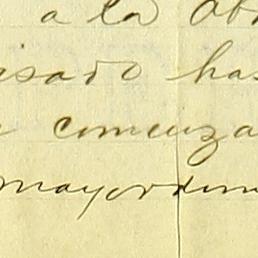 a la Ob
isado has
comenza
mayordom